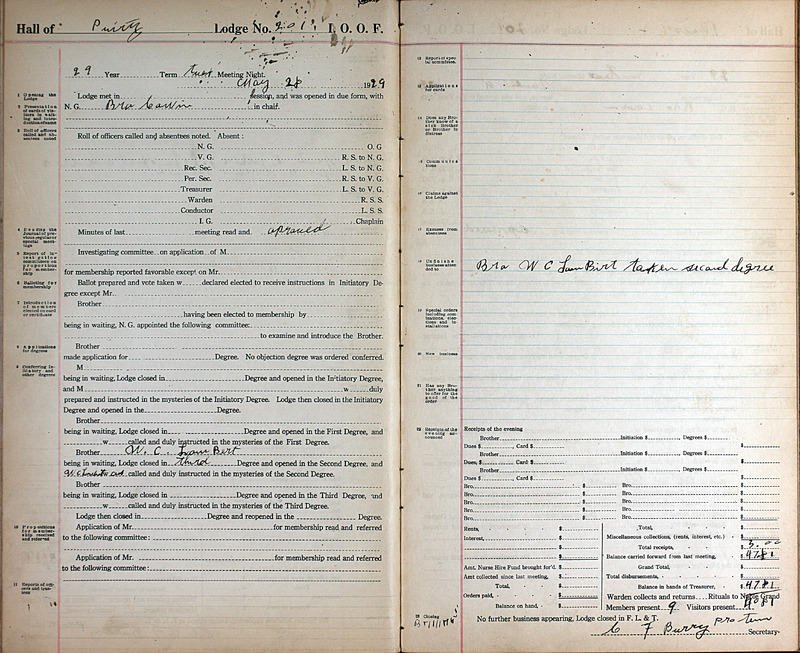 Hall of Purity Lodge No. 201 I. O. O. F.
29 Year Term Tues Meeting Night.
May 28 1929
1 Opening the Lodge
Lodge met in session, and was opened in due form, with
N. G. Bro in chair.
3 Roll of officers called and absentees noted
Roll of officers called and absentees noted. Absent:
N. G. O. G
V. G. R. S. to N. G.
Rec. Sec. L. S. to N. G.
Per. Sec. R. S. to V. G.
Treasurer L. S. to V. G.
Warden R. S. S.
Conductor L. S. S.
I. G. Chaplain
Minutes of last meeting read and. aproved
Investigating committee on application of M
for membership reported favorable except on Mr.
6 Balloting for membership
Ballot prepared and vote taken w declared elected to receive instructions in Initiatory De-
gree except Mr.
Brother
having been elected to membership by
being in waiting, N. G. appointed the following committee:
to examine and introduce the Brother.
8 Applications for degrees
Brother
made application for Degree. No objection degree was ordered conferred.
9 Conferring Initiatory and other degrees
M
being in waiting, Lodge closed in Degree and opened in the Initiatory Degree,
and M w duly
prepared and instructed in the mysteries of the Initiatory Degree. Lodge then closed in the Initiatory
Degree and opened in the Degree.
Brother
being in waiting, Lodge closed in Degree and opened in the First Degree, and
w called and duly instructed in the mysteries of the First Degree.
Brother W. C. Lam Birt
being in waiting, Lodge closed in third Degree and opened in the Second Degree, and
called and duly instructed in the mysteries of the Second Degree.
Brother
being in waiting, Lodge closed in Degree and opened in the Third Degree, and
w called and duly instructed in the mysteries of the Third Degree.
Lodge then closed in Degree and reopened in the Degree.
10 Propositions for membership received and referred
Application of Mr. for membership read and referred
to the following committee:
Application of Mr. for membership read and referred
to the following committee:
11 Reports of officers and trustees
12 Report of special committees.
13 Applications for cards
14 Does any Brother know of a sick Brother or Brother in distress
15 Communications
16 Claims against the Lodge
17 Excuses from absentees
Unfinished business attended to
Bro W C Lam Birt taken second degree
20 New business
21 Has any Brother anything to offer for the good of the order
22 Receipts of the evening announced
Receipts of the evening
Brother Initiation $ Degrees $
Dues $ Card $ $
Brother Initiation $ Degrees $
Dues, $ Card $ $
Brother Initiation $ Degrees $
Dues $ Card $ $
Bro. $ Bro. $
Bro. $ Bro. $
Bro. $ Bro. $
Bro. $ Bro. $
Bro. $ Bro. $
Rents, $
Interest, $
$
$
Amt. Nurse Hire Fund brought for'd. $
Amt collected since last meeting, $
Total, $
Orders paid, $
Balance on hand, $
Total, $
Miscellaneous collections, (rents, interest, etc.) $
Total receipts, $ 3.00
Balance carried forward from last meeting, $ 4781
Grand Total, $
Total disbursements, $
Balance in hands of Treasurer, $ 4781
Warden collects and returns Rituals to Noble Grand
Members present 9 Visitors present
23 Closing
No further business appearing, Lodge closed in F. L. & T.
C F Burry Pro tem
Secretary.